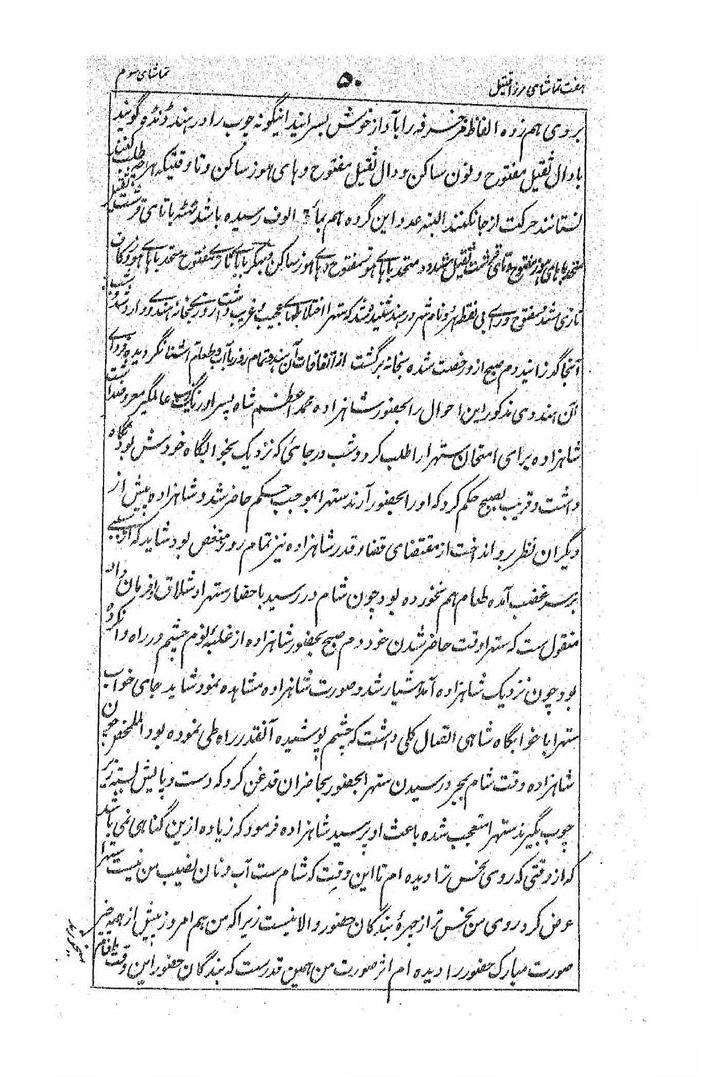 هفت تماشای مرزا قتیل ۵۰ تماشای سوم
بر وی هم زده الفاظ مزخرفه را بآواز خوش بسرایند اینگونه چوب را در هند ڈنڈه گویند
با دال ثقیل مفتوح و نون ساکن و دال ثقیل مفتوح و های هوز ساکن و تا وقتیکه هر چه طلب کنند
نستانند حرکت از جا نکنند البته عدد این گروه هم بمائة الوف رسیده باشد ستهره با تای قرشت ثقیل
متحد با های هوز مفتوح
تازی مشدد مفتوح و رای بی نقطه هر دو نام شهر در هند شنیده شد که ستهرا اختلاطهای عجیب و غریب داشت روزی بخانه هندوی وارد شد و شب
آنجا گذرانید دم صبح از و رخصت شده بخانه برگشت از اتفاقات آن هندو تمام روز بآب و طعام آشنا نگردیده روز دوم
آن هندوی مذکور این احوال را بحضور شاهزاده محمد اعظم شاه پسر اورنگ زیب عالمگیر معروض داشت
شاهزاده برای امتحان ستهرا را طلب کرد و شب در جائی که نزدیک بخوابگاه خودش بود نگاه
داشت و قریب بصبح حکم کرد که او را بحضور آرند ستهرا بموجب حکم حاضر شد و شاهزاده پیش از
دیگران نظر برو انداخت از مقتضای قضا و قدر شاهزاده نیز تمام روز منغص بود شاید که از سببی
بر سر غضب آمده طعام هم نخورده بود چون شام در رسید باحضار ستهرا و شلاق او فرمان داد
منقول است که ستهرا وقت حاضر شدن خود دم صبح بحضور شاهزاده از غلبۀ نوم چشم در راه وا نکرده
بود چون نزدیک شاهزاده آمد هشیار شد و صورت شاهزاده مشاهده نمود شاید جای خواب
ستهرا با خوابگاه شاهی اتصال کلی داشت که چشم پوشیده آنقدر راه طی نموده بود الملخص چون
شاهزاده وقت شام بمجرد رسیدن ستهرا بحضور بحاضران قدغن کرد که دست و پایش بسته زیر
چوب بگیرند ستهرا متعجب شده باعث او پرسید شاهزاده فرمود که زیاده ازین گناهی نمی باشد
که از وقتی که روی نحس ترا دیده ام تا این وقت که شام ست آب و نان نصیب من نیست ستهرا
عرض کرد روی من نحس تر از چهرۀ بندگان حضور والا نیست زیرا که من هم امروز پیش از همه چیز
صورت مبارک حضور را دیده ام اثر صورت من همین قدرست که بندگان حضور را این وقت